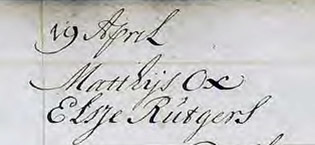 19 April
Matthijs Ox
Elsje Rutgers